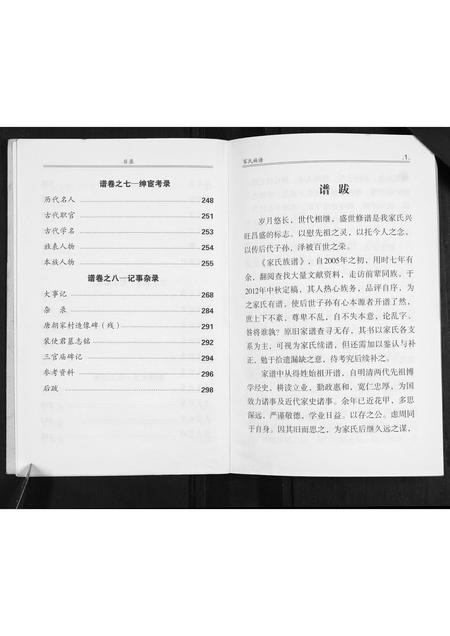 目录
谱卷之七—绅宦考录
历代名人 248
古代职官 251
古代学名 253
姓表人物 254
本族人物 255
谱卷之八—记事杂录
大事记 268
杂 录 284
唐朝家村造像碑（残） 291
裴使君墓志铭 292
三官庙碑记 294
参考资料 296
后跋 298
家氏族谱 1
谱 跋
岁月悠长，世代相继，盛世修谱是我家氏兴
旺昌盛的标志。以慰先祖之灵，以托今人之念，
以传后代子孙，泽被百世之荣。
《家氏族谱》，自2005年之初，用时七年有
余，翻阅查找大量文献资料，走访前辈同族，于
2012年中秋定稿，其人热心族务，品评自序，为
之家氏有谱，使后世子孙有心本源者开谱了然，
世上下不紊，尊卑不乱，自不失本意，论乱字，
咎将谁孰？原旧家谱查寻无存，其书以家氏各支
系为主，可视为家氏续谱，但还需加以鉴认与补
正，勉于拾遗漏缺之意，待考究后续补之。
家谱中从得姓始祖开谱，自明清两代先祖博
学经史，耕读立业，勤政惠和，宽仁忠厚，为国
效力诸事及近代家史诸事。余年已近花甲，多思
深远，严谨敬德，学业日益。以存之公。虑周同
于自身。因其旧而思之，为家氏后继久远之谋，